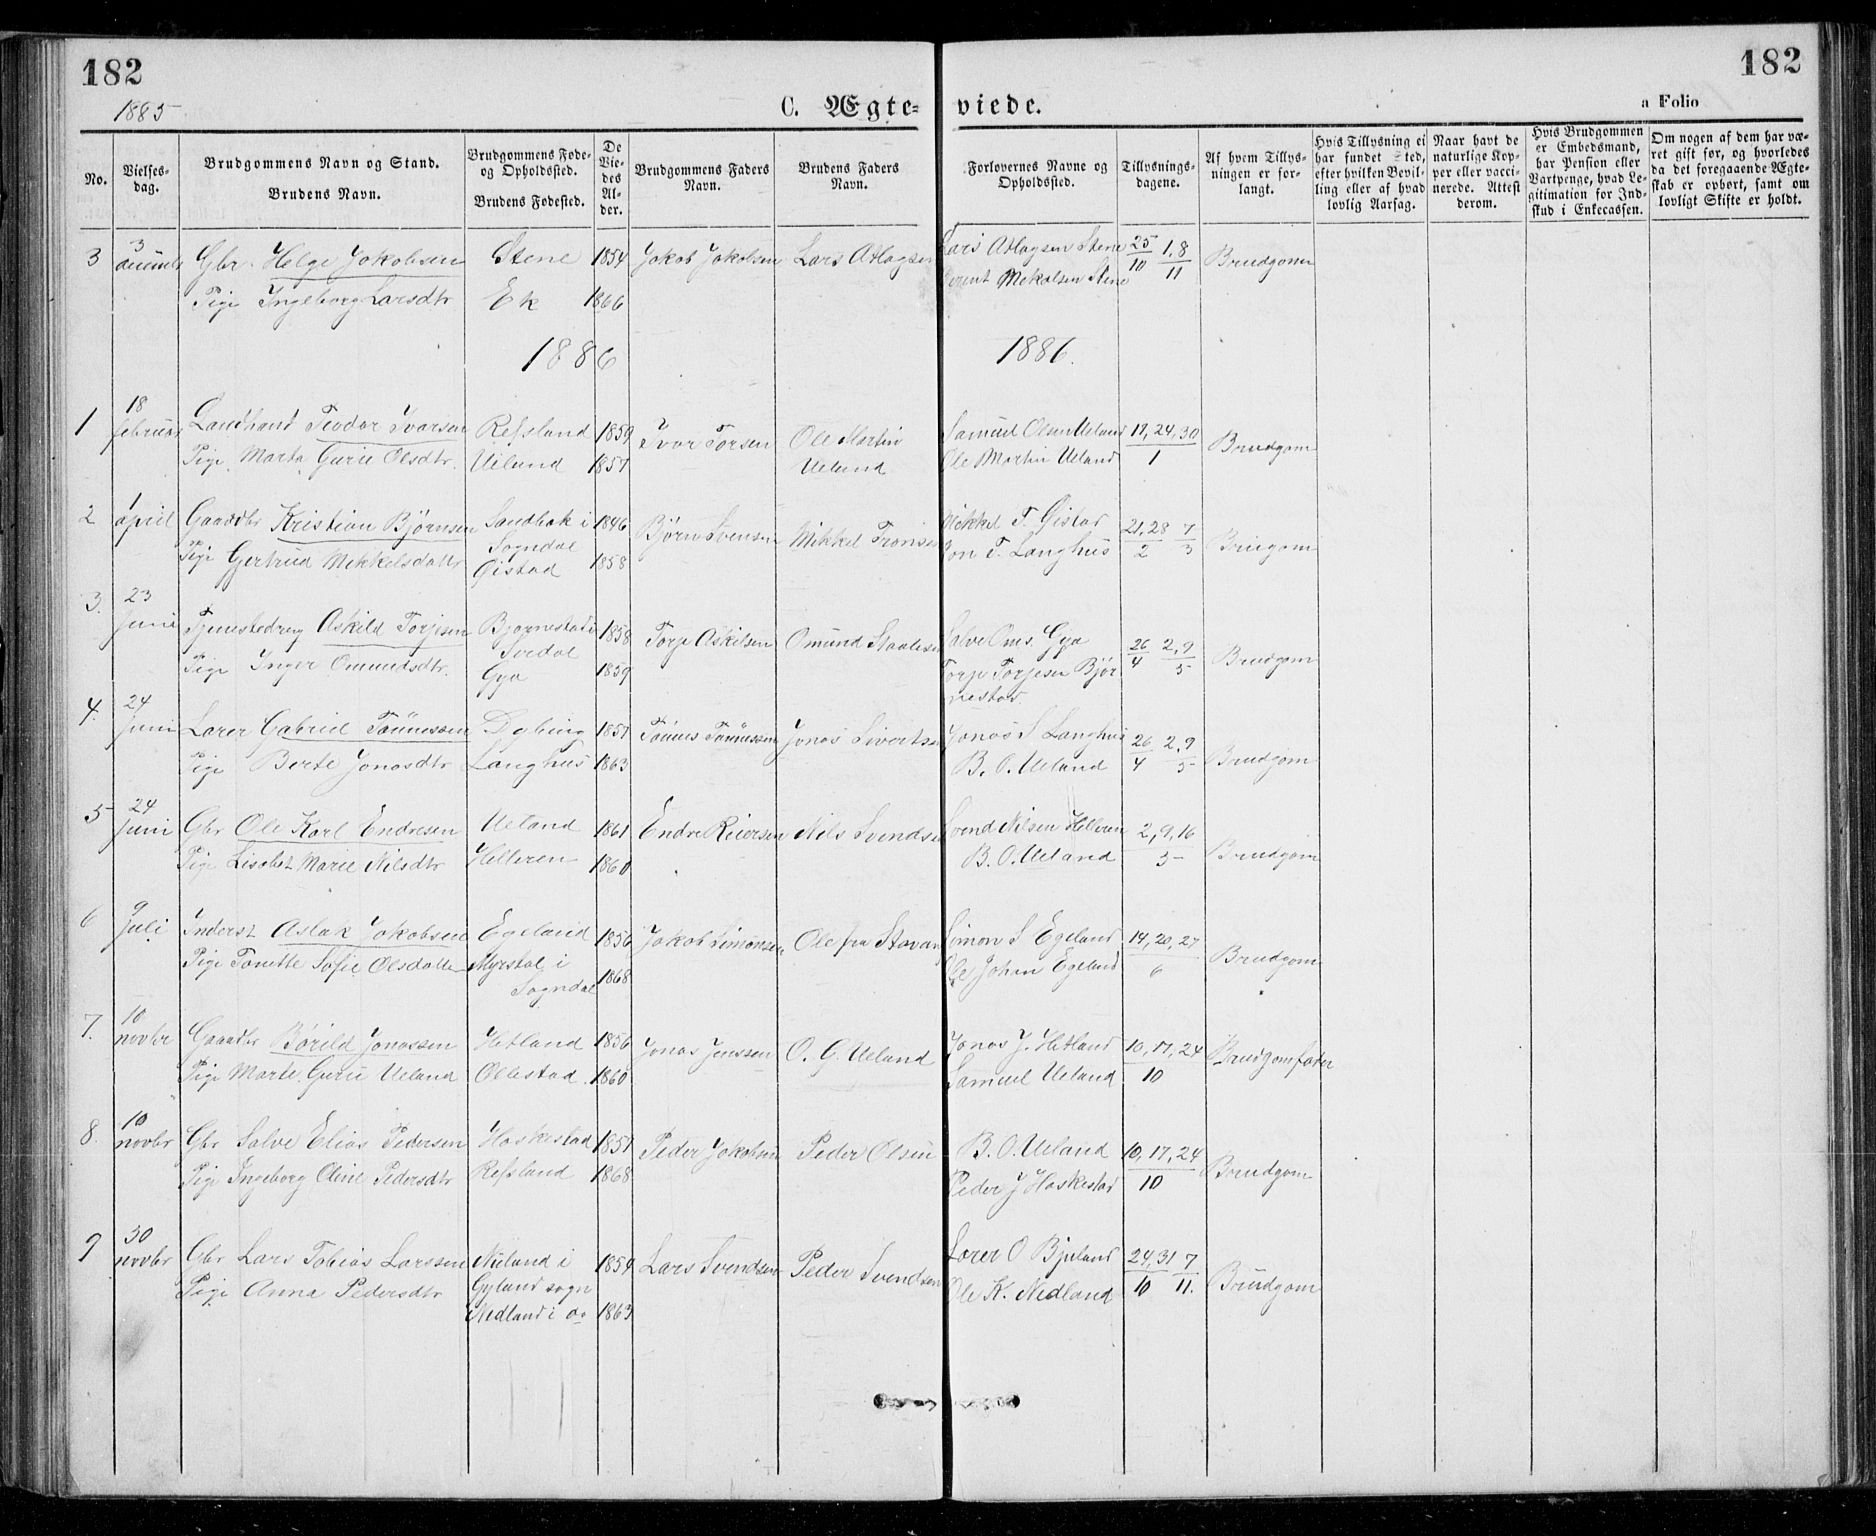 182
182
1885
C. Ægte-viede.
a Folio
No.
Vielses-dag.
Brudgommens Navn og Stand.
Brudens Navn.
Brudgommens Føde- og Opholdssted.
Brudens Fødested.
De Vie-des Al-der.
Brudgommens Faders Navn.
Brudens Faders Navn.
Forlovernes Navne og Opholdssted.
Tillysnings-dagene.
Af hvem Tillys-ningen er for-langt.
Hvis Tillysning ei har fundet Sted, efter hvilken Bevil-ling eller af hvad lovlig Aarsag.
Naar havt de naturlige Kop-per eller vacci-nerede. Attest derom.
Hvis Brudgommen er Embedsmand, har Pension eller Vartpenge, hvad Le-gitimation for Ind-skud i Enkecassen.
Om nogen af dem har væ-ret gift før, og hvorledes da det foregaaende Ægte-skab er ophørt, samt om lovligt Skifte er holdt.
3 3 Gbr. Helge Jakobsen Stene 1854 Jakob Jakobsen Lars Atlagsen Lars Atlagsen Stene 25/10 1,8/11 Brudgom
Pige Ingeborg Larsdtr Ek 1866 Berent Mekalsen Stene
1886 1886.
1 18 februar Landhand Teodor Ivarsen Refsland 1859 Ivar Torsen Ole Martin Ueland Samuel Olsen Ueland 17,24,30/1 Brudgom
Pige Marta Gurie Olsdtr. Ueland 1857 Ole Martin Ueland
2 1 april Gaardbr Kristian Bjørnsen Sandbæk i Sogndal 1846 Bjørn Svensen Mikkel Tronsen Mikkel T. Øistad 21,28/2 7/3 Brugom
Pige Gertrud Mikkelsdattr Øistad 1858 Jon T. Langhus
3. 23 juni Tjenestedreng Askild Torjesen Bjørnestad i Siredal 1858 Torje Askilsen Omund Staalesen Salve Oms. Gya 26/4 2,9/5 Brudgom
Pige Inger Omundsdtr. Gya 1859 Torje Torjesen Bjør
nestad
4. 24 juni Lærer Gabriel Tønnessen Dybing 1857 Tønnes Tønnessen Jonas Sivertsen Jonas S Langhus 26/4 2,9/5 Brudgom
Pige Berte Jonasdtr Langhus 1863 B. O. Ueland
5 24 juni Gbr Ole Karl Endresen Ueland 1861 Endre Reiersen Nils Svendsen Svend Nilsen Helleren 2,9,16/5 Brudgom
Pige Lisabet Marie Nilsdtr Helleren 1860 B. O. Ueland
6 9 juli Inderst Aslak Jakobsen Egeland 1856 Jakob Simonsen Ole fra Stavang Simon S Egeland 14,20,27/6 Brudgom
Pige Tonette Sofie Olsdatter Myrstøl i Sogndal 1868 Ole Johan Egeland
7. 10 novbr Gaardbr Børild Jonassen Hetland 1856 Jonas Jenssen O. G. Ueland Jonas J. Hetland 10,17,24/10 Brudgomfader
Pige Marte Gurie Ueland Ollestad 1860 Samuel Ueland
8. 10 novbr Gbr Salve Elias Pedersen Haskestad 1857 Peder Jakobsen Peder Olsen B. O. Ueland 10,17,24/10 Brudgom
Pige Ingeborg Oline Pedersdtr Refsland 1868 Peder J Haskestad
9 30 novbr Gbr Lars Tobias Larssen Nuland i Gyland sogn 1859 Lars Svendsen Peder Svendsen Sører O Bjuland 24,31/10 7/11. Brudgom
Pige Anna Pedersdtr Nedland i do 1863 Ole K. Nedland